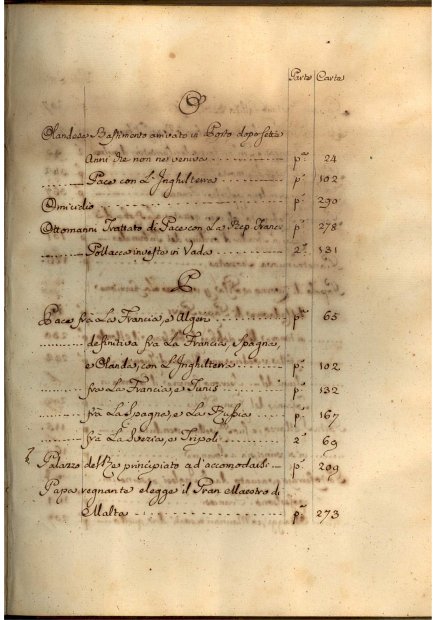 Parte Carta
O
Olandese Bastimento arrivato in Porto dopo sette
Anni che non ne veniva p.ª 24
Pace con L'Inghilterra p.ª 102
Omicidio p.ª 290
Ottomanni Trattato di Pace con La Rep. Franc. p.ª 278
Pollacca investo in Vada 2.ª 131
P
Pace frà La Francia, e Algeri p.ª 65
definitiva frà La Francia, Spagna,
e Olanda, con L'Inghilterra p.ª 102
frà La Francia, e Tunis p.ª 132
frà La Spagna, e La Russia p.ª 167
frà La Svezia, e Tripoli 2.ª 69
Palazzo del Re principiato ad accomodarsi p.ª 209
Papa regnante elegge il Gran Maestro di
Malta p.ª 273